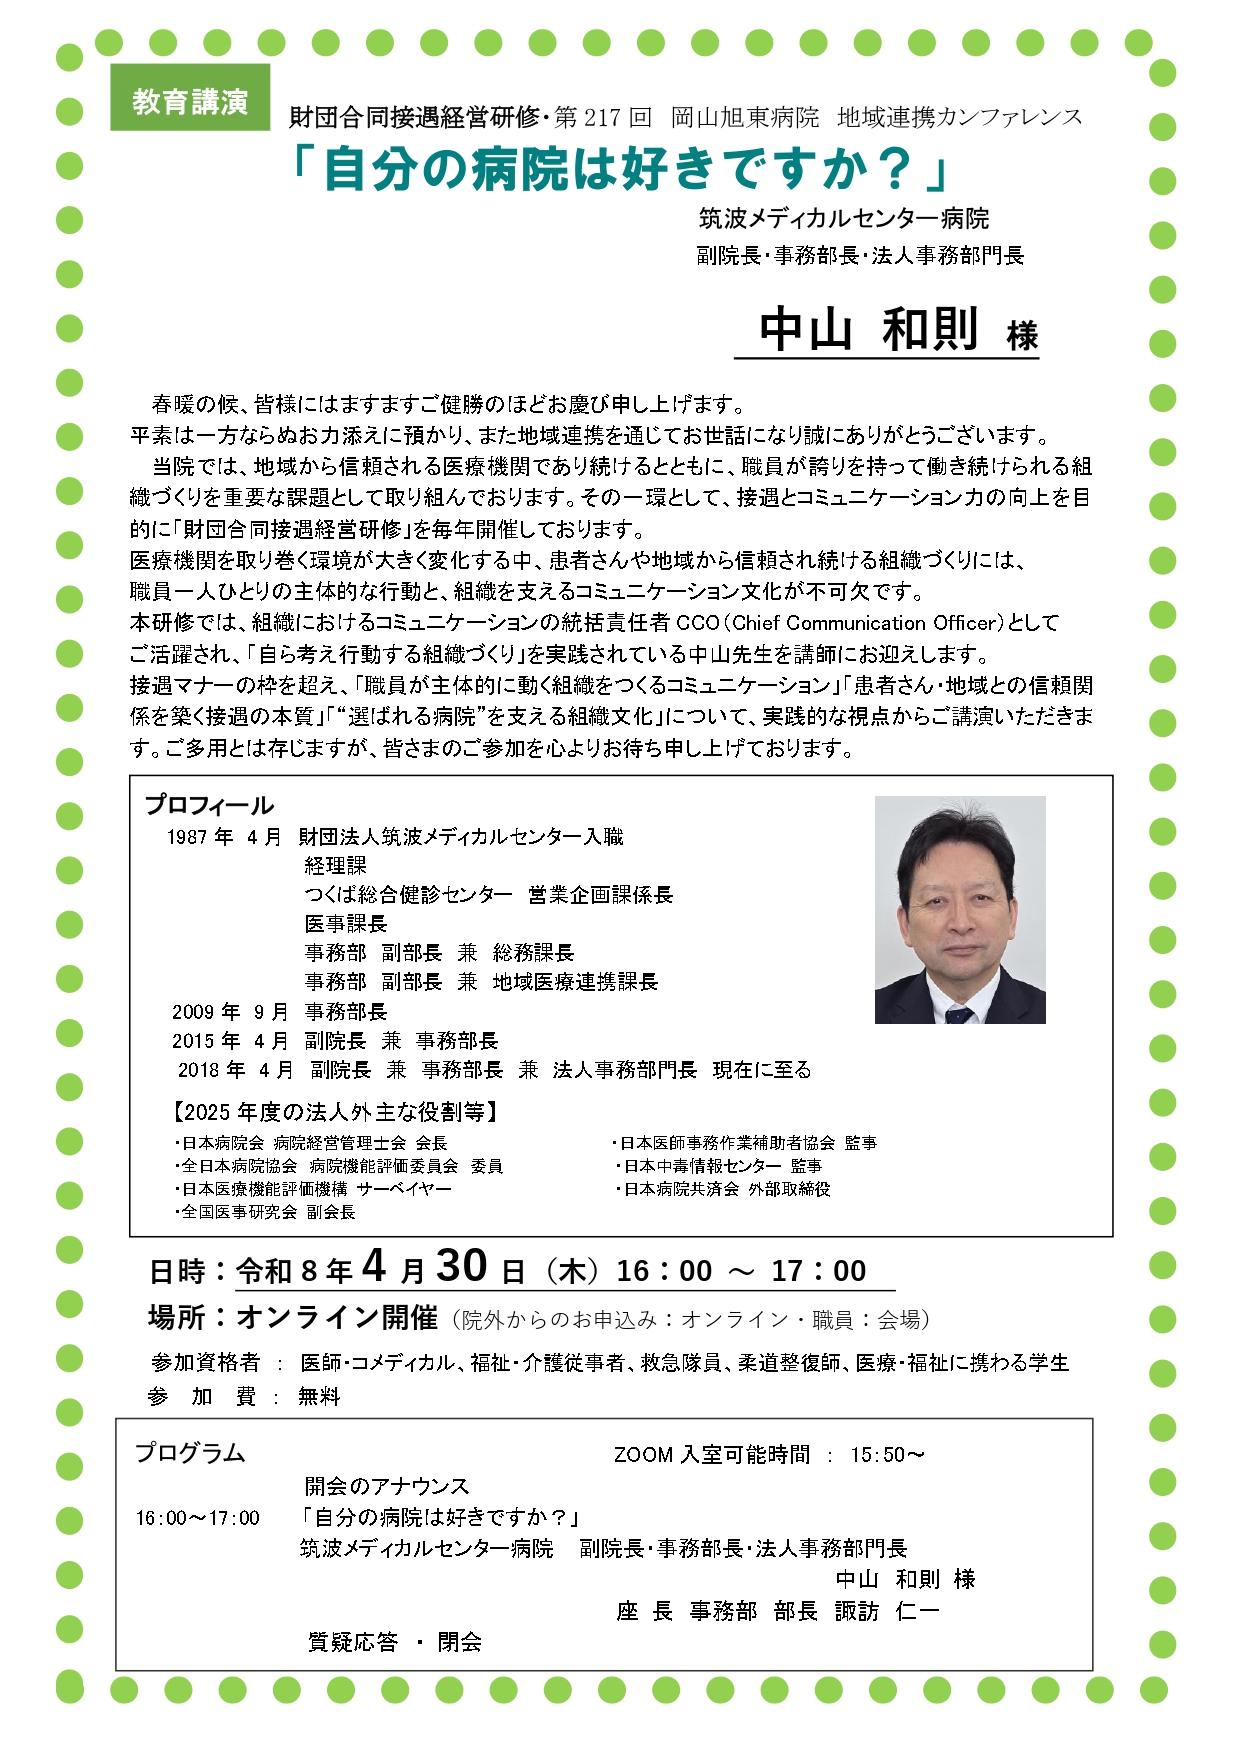 教育講演
財団合同接遇経営研修・第217回 岡山旭東病院 地域連携カンファレンス
「自分の病院は好きですか？」
筑波メディカルセンター病院
副院長・事務部長・法人事務部門長
中山 和則 様
春暖の候、皆様にはますますご健勝のほどお慶び申し上げます。
平素は一方ならぬお力添えに預かり、また地域連携を通じてお世話になり誠にありがとうございます。
当院では、地域から信頼される医療機関であり続けるとともに、職員が誇りを持って働き続けられる組
織づくりを重要な課題として取り組んでおります。その一環として、接遇とコミュニケーション力の向上を目
的に「財団合同接遇経営研修」を毎年開催しております。
医療機関を取り巻く環境が大きく変化する中、患者さんや地域から信頼され続ける組織づくりには、
職員一人ひとりの主体的な行動と、組織を支えるコミュニケーション文化が不可欠です。
本研修では、組織におけるコミュニケーションの統括責任者 CCO（Chief Communication Officer）として
ご活躍され、「自ら考え行動する組織づくり」を実践されている中山先生を講師にお迎えします。
接遇マナーの枠を超え、「職員が主体的に動く組織をつくるコミュニケーション」「患者さん・地域との信頼関
係を築く接遇の本質」「“選ばれる病院”を支える組織文化」について、実践的な視点からご講演いただきま
す。ご多用とは存じますが、皆さまのご参加を心よりお待ち申し上げております。
プロフィール
1987 年 4 月 財団法人筑波メディカルセンター入職
経理課
つくば総合健診センター 営業企画課係長
医事課長
事務部 副部長 兼 総務課長
事務部 副部長 兼 地域医療連携課長
2009 年 9 月 事務部長
2015 年 4 月 副院長 兼 事務部長
2018 年 4 月 副院長 兼 事務部長 兼 法人事務部門長 現在に至る
【2025 年度の法人外主な役割等】
・日本病院会 病院経営管理士会 会長 ・日本医師事務作業補助者協会 監事
・全日本病院協会 病院機能評価委員会 委員 ・日本中毒情報センター 監事
・日本医療機能評価機構 サーベイヤー ・日本病院共済会 外部取締役
・全国医事研究会 副会長
日時：令和 8 年 4 月 30 日（木）16：00 ～ 17：00
場所：オンライン開催（院外からのお申込み：オンライン・職員：会場）
参加資格者 ： 医師・コメディカル、福祉・介護従事者、救急隊員、柔道整復師、医療・福祉に携わる学生
参 加 費 ： 無料
プログラム ZOOM 入室可能時間 ： 15：50～
開会のアナウンス
16：00～17：00 「自分の病院は好きですか？」
筑波メディカルセンター病院 副院長・事務部長・法人事務部門長
中山 和則 様
座 長 事務部 部長 諏訪 仁一
質疑応答 ・ 閉会